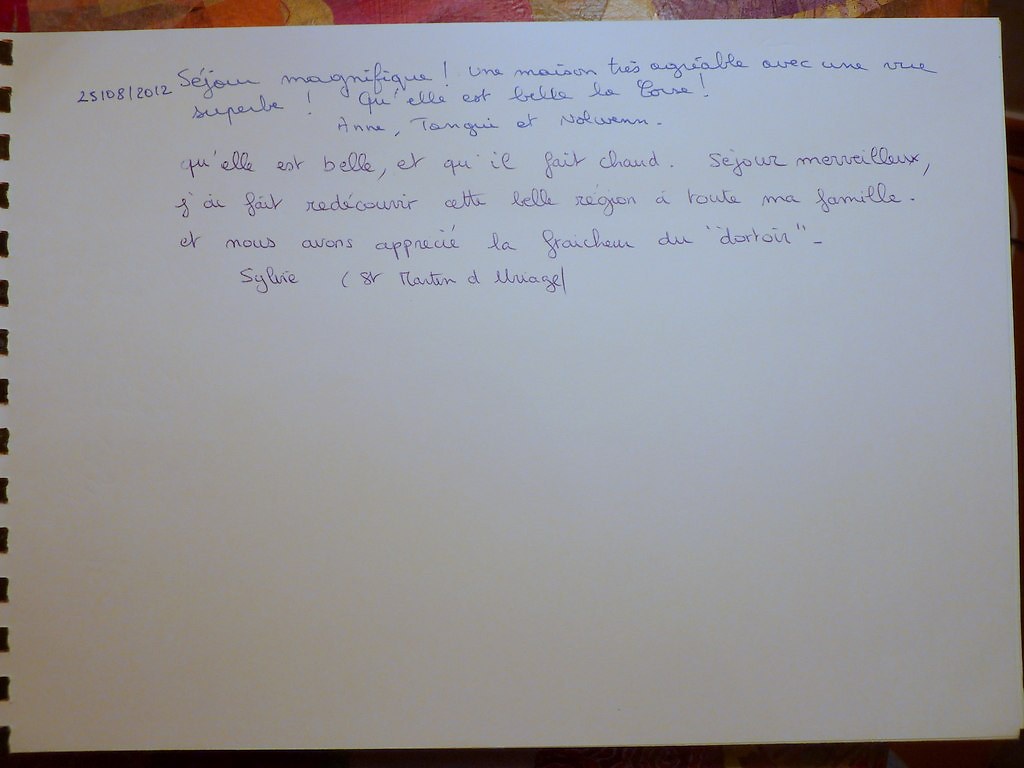 25/08/2012 Séjour magnifique ! Une maison très agréable avec une vue
superbe ! Qu'elle est belle la Corse !
Anne, Tangui et Nolwenn.
qu'elle est belle, et qu'il fait chaud. Séjour merveilleux,
j'ai fait redécouvrir cette belle région à toute ma famille.
et nous avons apprecié la fraicheur du "dortoir" -
Sylvie (St Martin d Uriage)